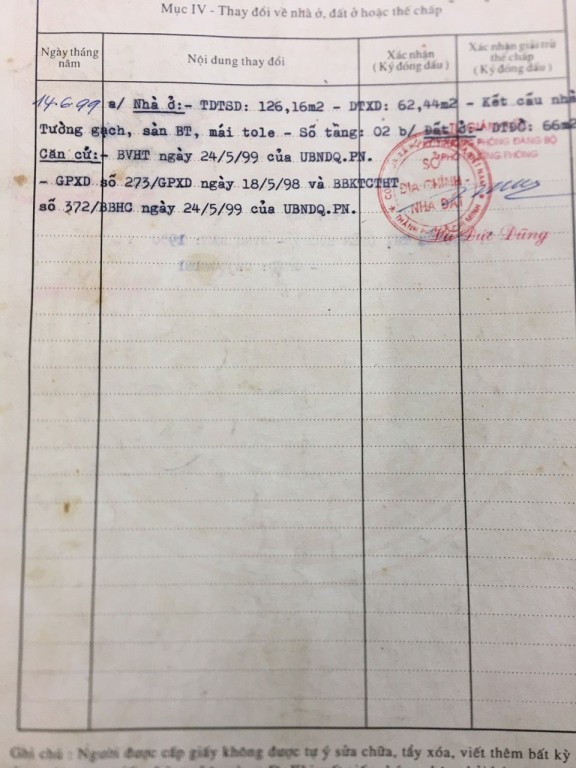 Mục IV - Thay đổi về nhà ở, đất ở hoặc thế chấp
Ngày tháng năm
Nội dung thay đổi
Xác nhận
( Ký đóng dấu )
Xác nhận giải trừ thế chấp
( Ký đóng dấu )
14.6.99 a/ Nhà ở:- TDTSD: 126,16m2 - DTXD: 62,44m2 - Kết cấu nhà
Tường gạch, sàn BT, mái tole - Số tầng: 02 b/ Đất ở:- DTĐO: 66m2
Căn cứ:- BVHT ngày 24/5/99 của UBNDQ.PN.
- GPXD số 273/GPXD ngày 18/5/98 và BBKTCTHT
số 372/BBHC ngày 24/5/99 của UBNDQ.PN.
PHÒNG ĐĂNG BỘ
SỞ
ĐỊA CHÍNH
NHÀ ĐẤT
Đức Dũng
Ghi chú : Người được cấp giấy không được tự ý sửa chữa, tẩy xóa, viết thêm bất kỳ